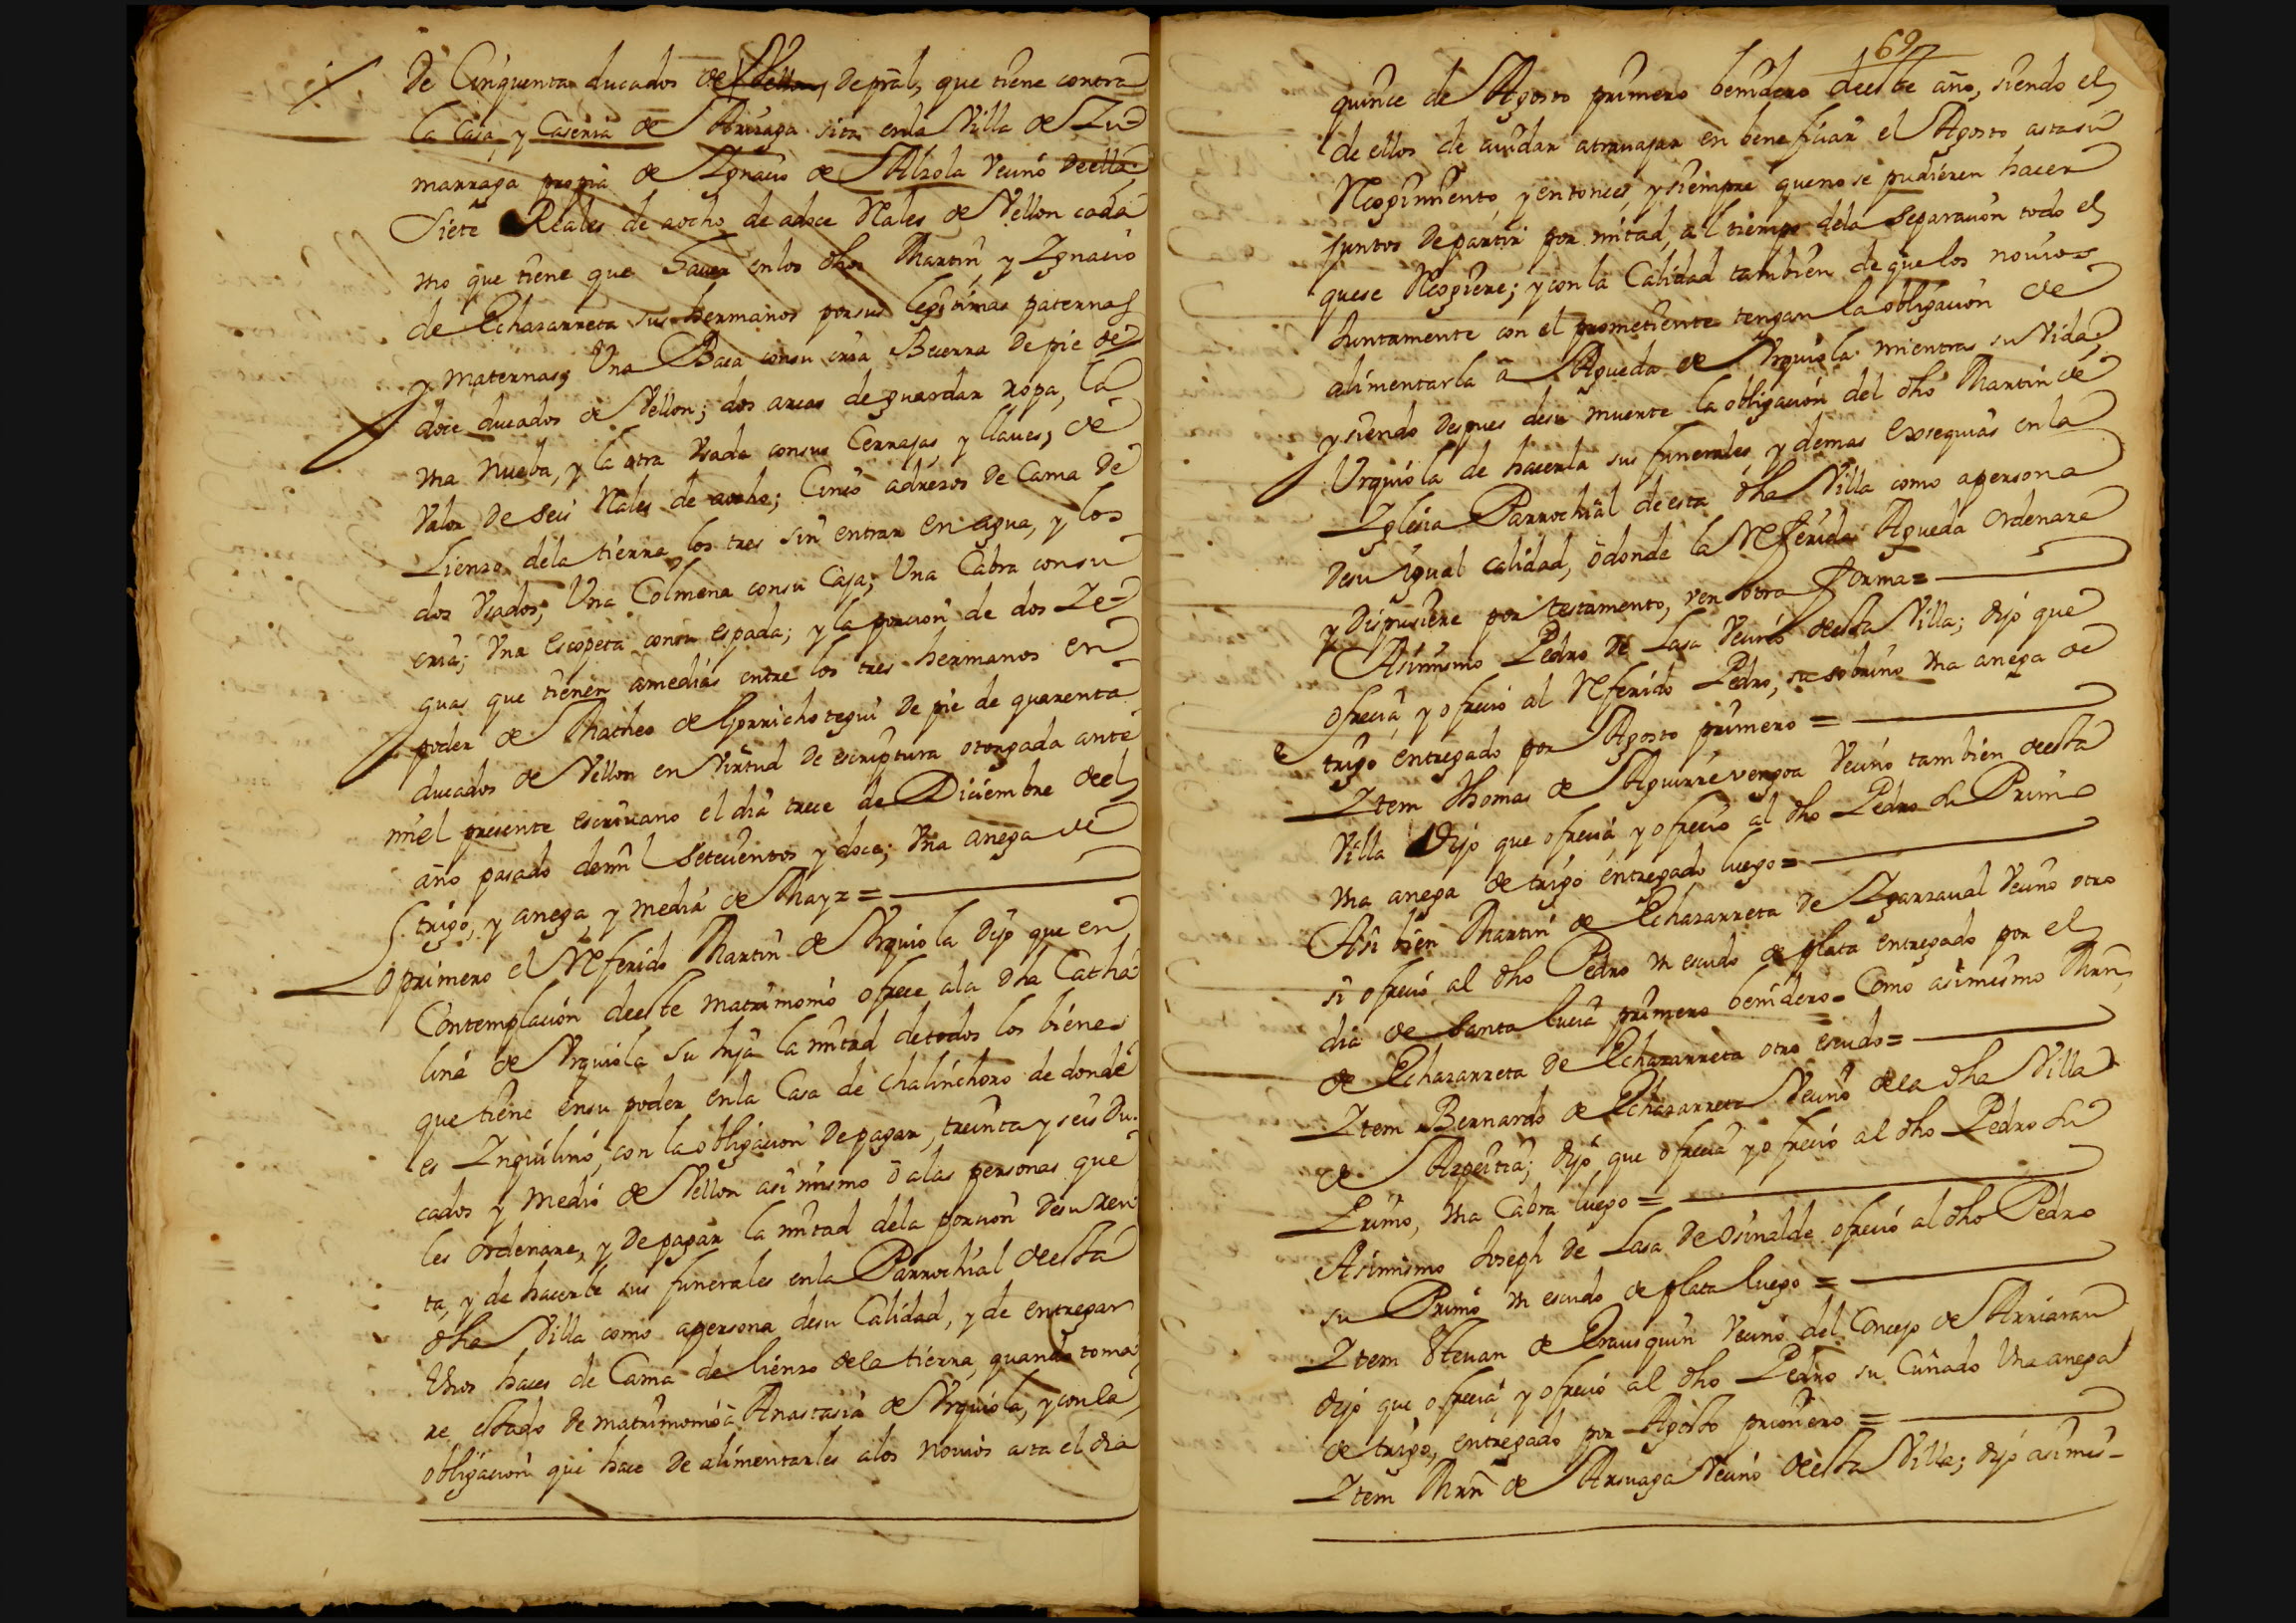 De Cinquenta ducados de Vellon, de pral, que tiene contra
la Casa, y Caseria de Aruraga sita enla Villa de Zu-
marraga propia de Ygnacio de Alzola vecino de ella,
Siete Reales de aocho de adoce Rales de Vellon cada
uno que tiene que haver enlos dhos Martin y Ygnacio
de Echazarreta sus hermanos porsus legitimas paternas
y maternas, Una Baca consu cria Becerra de pie de
doce ducados de Vellon; dos arcas de guardar ropa, la
una nueba, y la otra usada consus Cerrajas, y llaves, de
valor de seis Rales de aocho; Cinco adrezos de Cama de
Lienzo dela tierra los tres sin entrar en agua, y los
dos usados; Una Colmena consu Caja; Una Cabra consu
cria; una escopeta consu espada; y la porcion de dos Ye-
guas que tienen amedias entre los tres hermanos en
poder de Matheo de Gorrichotegui de pie de quarenta
ducados de Vellon en Virtud de escriptura otorgada ante
miel presente escrivano el dia trece de Diciembre deel
año pasado demil Setecientos y doce; una anega de
trigo, y anega, y media de Mayz =
O primero el Referido Martin de Urquiola dijo que en
Contemplacion deeste matrimonio ofrece ala dha Catha-
lina de Urquiola su hija la mitad detodos los bienes
que tiene ensu poder enla Casa de chalinchoro de donde
es Ynquilino, con la obligacion de pagar, treinta y seis Du-
cados y medio de Vellon asi mismo o alas personas que
les ordenare, y de pagar la mitad dela porcion desu ren-
ta, y de hacerle sus funerales enla Parrochial deesta
dha Villa como apersona desu Calidad, y de entregar
unos haces de Cama de lienzo dela tierra, quando toma-
re estado de matrimonio a Anastasia de Urquiola, y con la
obligacion que hace de alimentarles alos novios asta el dia
69
quince de Agosto primero benidero deeste año, siendo el
de ellos de aiudar atravajar en beneficiar el Agosto asta su
Recogimiento y entonces, y siempre que no se pudieren hacer
juntos de partir por mitad, al tiempo dela Separacion todo el
quese Recogiere; y con la Calidad tambien de que los novios
Juntamente con el prometiente tengan la obligacion de
alimentarla a Agueda de Urquiola mientras su Vida,
y siendo despues desu muerte la obligacion del dho Martin de
Urquiola de hacerla sus funerales, y demas Exsequias en la
Yglesia Parrochial deesta dha Villa como apersona
desu igual calidad, o donde la Referida Agueda Ordenare
y dispusiere por testamento, y en otra forma =
Asimismo Pedro de Lasa Vecino deesta Villa; dijo que
ofrecia y ofrecio al Referido Pedro, su sobrino una anega de
trigo entregado por Agosto primero =
Ytem Thomas de Aguirrevengoa Vecino tambien deesta
Villa Dijo que ofrecia, y ofrecio al dho Pedro su Primo
una anega de trigo entregado luego =
Asi bien Martin de Echazarreta de Ygarzaval Vecino otro
si ofrecio al dho Pedro un escudo de plata entregado por el
dia de Santa Lucia primero benidero = Como asimismo Mrn
de Echazarreta de Echazarreta otro escudo =
Ytem Bernardo de Echazarreta Vecino dela dha Villa
de Azpeitia; dijo que ofrecia y ofrecio al dho Pedro su
Primo, una Cabra luego =
Asimismo Joseph de Lasa de Osinalde ofrecio al dho Pedro
su Primo un escudo de plata luego =
Ytem Estevan de Erausquin Vecino del Concejo de Arriaran
dijo que ofrecia y ofrecio al dho Pedro su Cuñado Una anega
de trigo, entregado por Agosto primero =
Ytem Mrn de Arsuaga Vecino deesta Villa; dijo asimis-